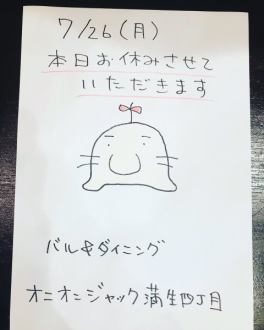 7/26(月)
本日お休みさせて
いただきます
バル&ダイニング
オニオンジャック蒲生四丁目